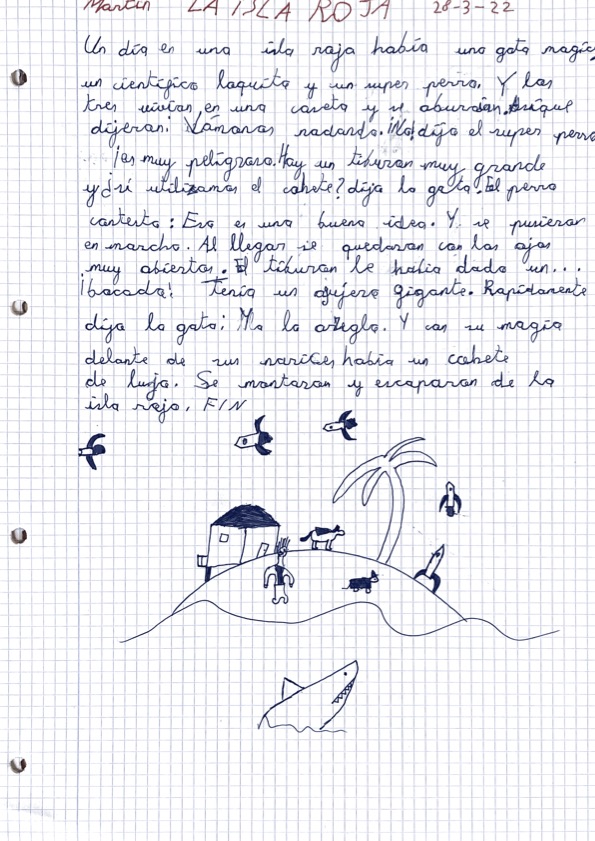 Martín LA ISLA ROJA 28-3-22
Un día en una isla roja había una gata magic
un científico loquito y un super perro. Y los
tres vivían en una caseta y se aburrían. Asique
dijeron: Vámonos nadando. ¡No! dijo el super perro
¡es muy peligroso. Hay un tiburon muy grande
y ¿si utilizamos el cohete? dijo la gata. El perro
contesto: Eso es una buena idea. Y se pusieron
en marcha. Al llegar se quedaron con los ojos
muy abiertos. El tiburon le había dado un...
¡bocado! Tenía un agujero gigante. Rapidamente
dijo la gata: Yo lo arreglo. Y con su magia
delante de sus narices había un cohete
de lujo. Se montaron y escaparon de la
isla roja. FIN